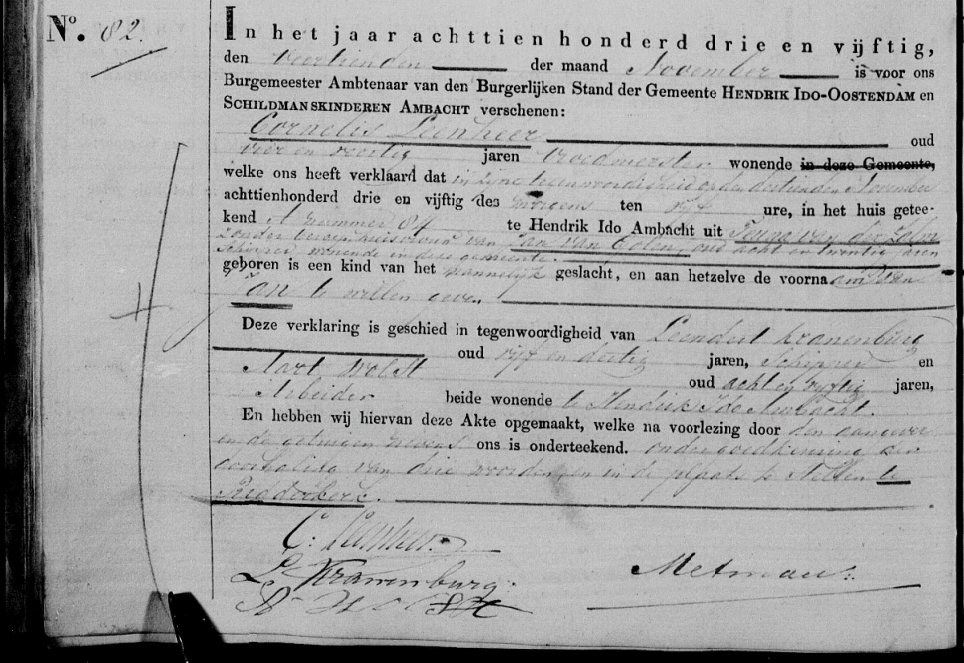 N°. 82.
In het jaar achttien honderd drie en vijftig,
den veertienden der maand November is voor ons
Burgemeester Ambtenaar van den Burgerlijken Stand der Gemeente HENDRIK IDO-OOSTENDAM en
SCHILDMANSKINDEREN AMBACHT verschenen:
Cornelis Leenheer oud
vier en veertig jaren vroedmeester wonende in deze Gemeente,
welke ons heeft verklaard dat in zijne tegenwoordigheid op den dertienden November
achttienhonderd drie en vijftig des morgens ten vijf ure, in het huis getee-
kend A nummer 84 te Hendrik Ido Ambacht uit van der
zonder beroep huisvrouw van Jan van oud acht en twintig jaren
Schipper, wonende in deze gemeente.
geboren is een kind van het mannelijk geslacht, en aan hetzelve de voornaam van
Jan te willen geven.
Deze verklaring is geschied in tegenwoordigheid van Leendert Kranenburg
oud vijf en dertig jaren, Schipper en
Aart oud acht en vijftig jaren,
Arbeider beide wonende te Hendrik Ido Ambacht.
En hebben wij hiervan deze Akte opgemaakt, welke na voorlezing door den aangever
en de getuigen nevens ons is onderteekend. onder goedkeuring der
doorhaling van drie woorden en in de plaats te stellen te
Ridderkerk.
C. Leenheer
L. Kranenburg.
Metman